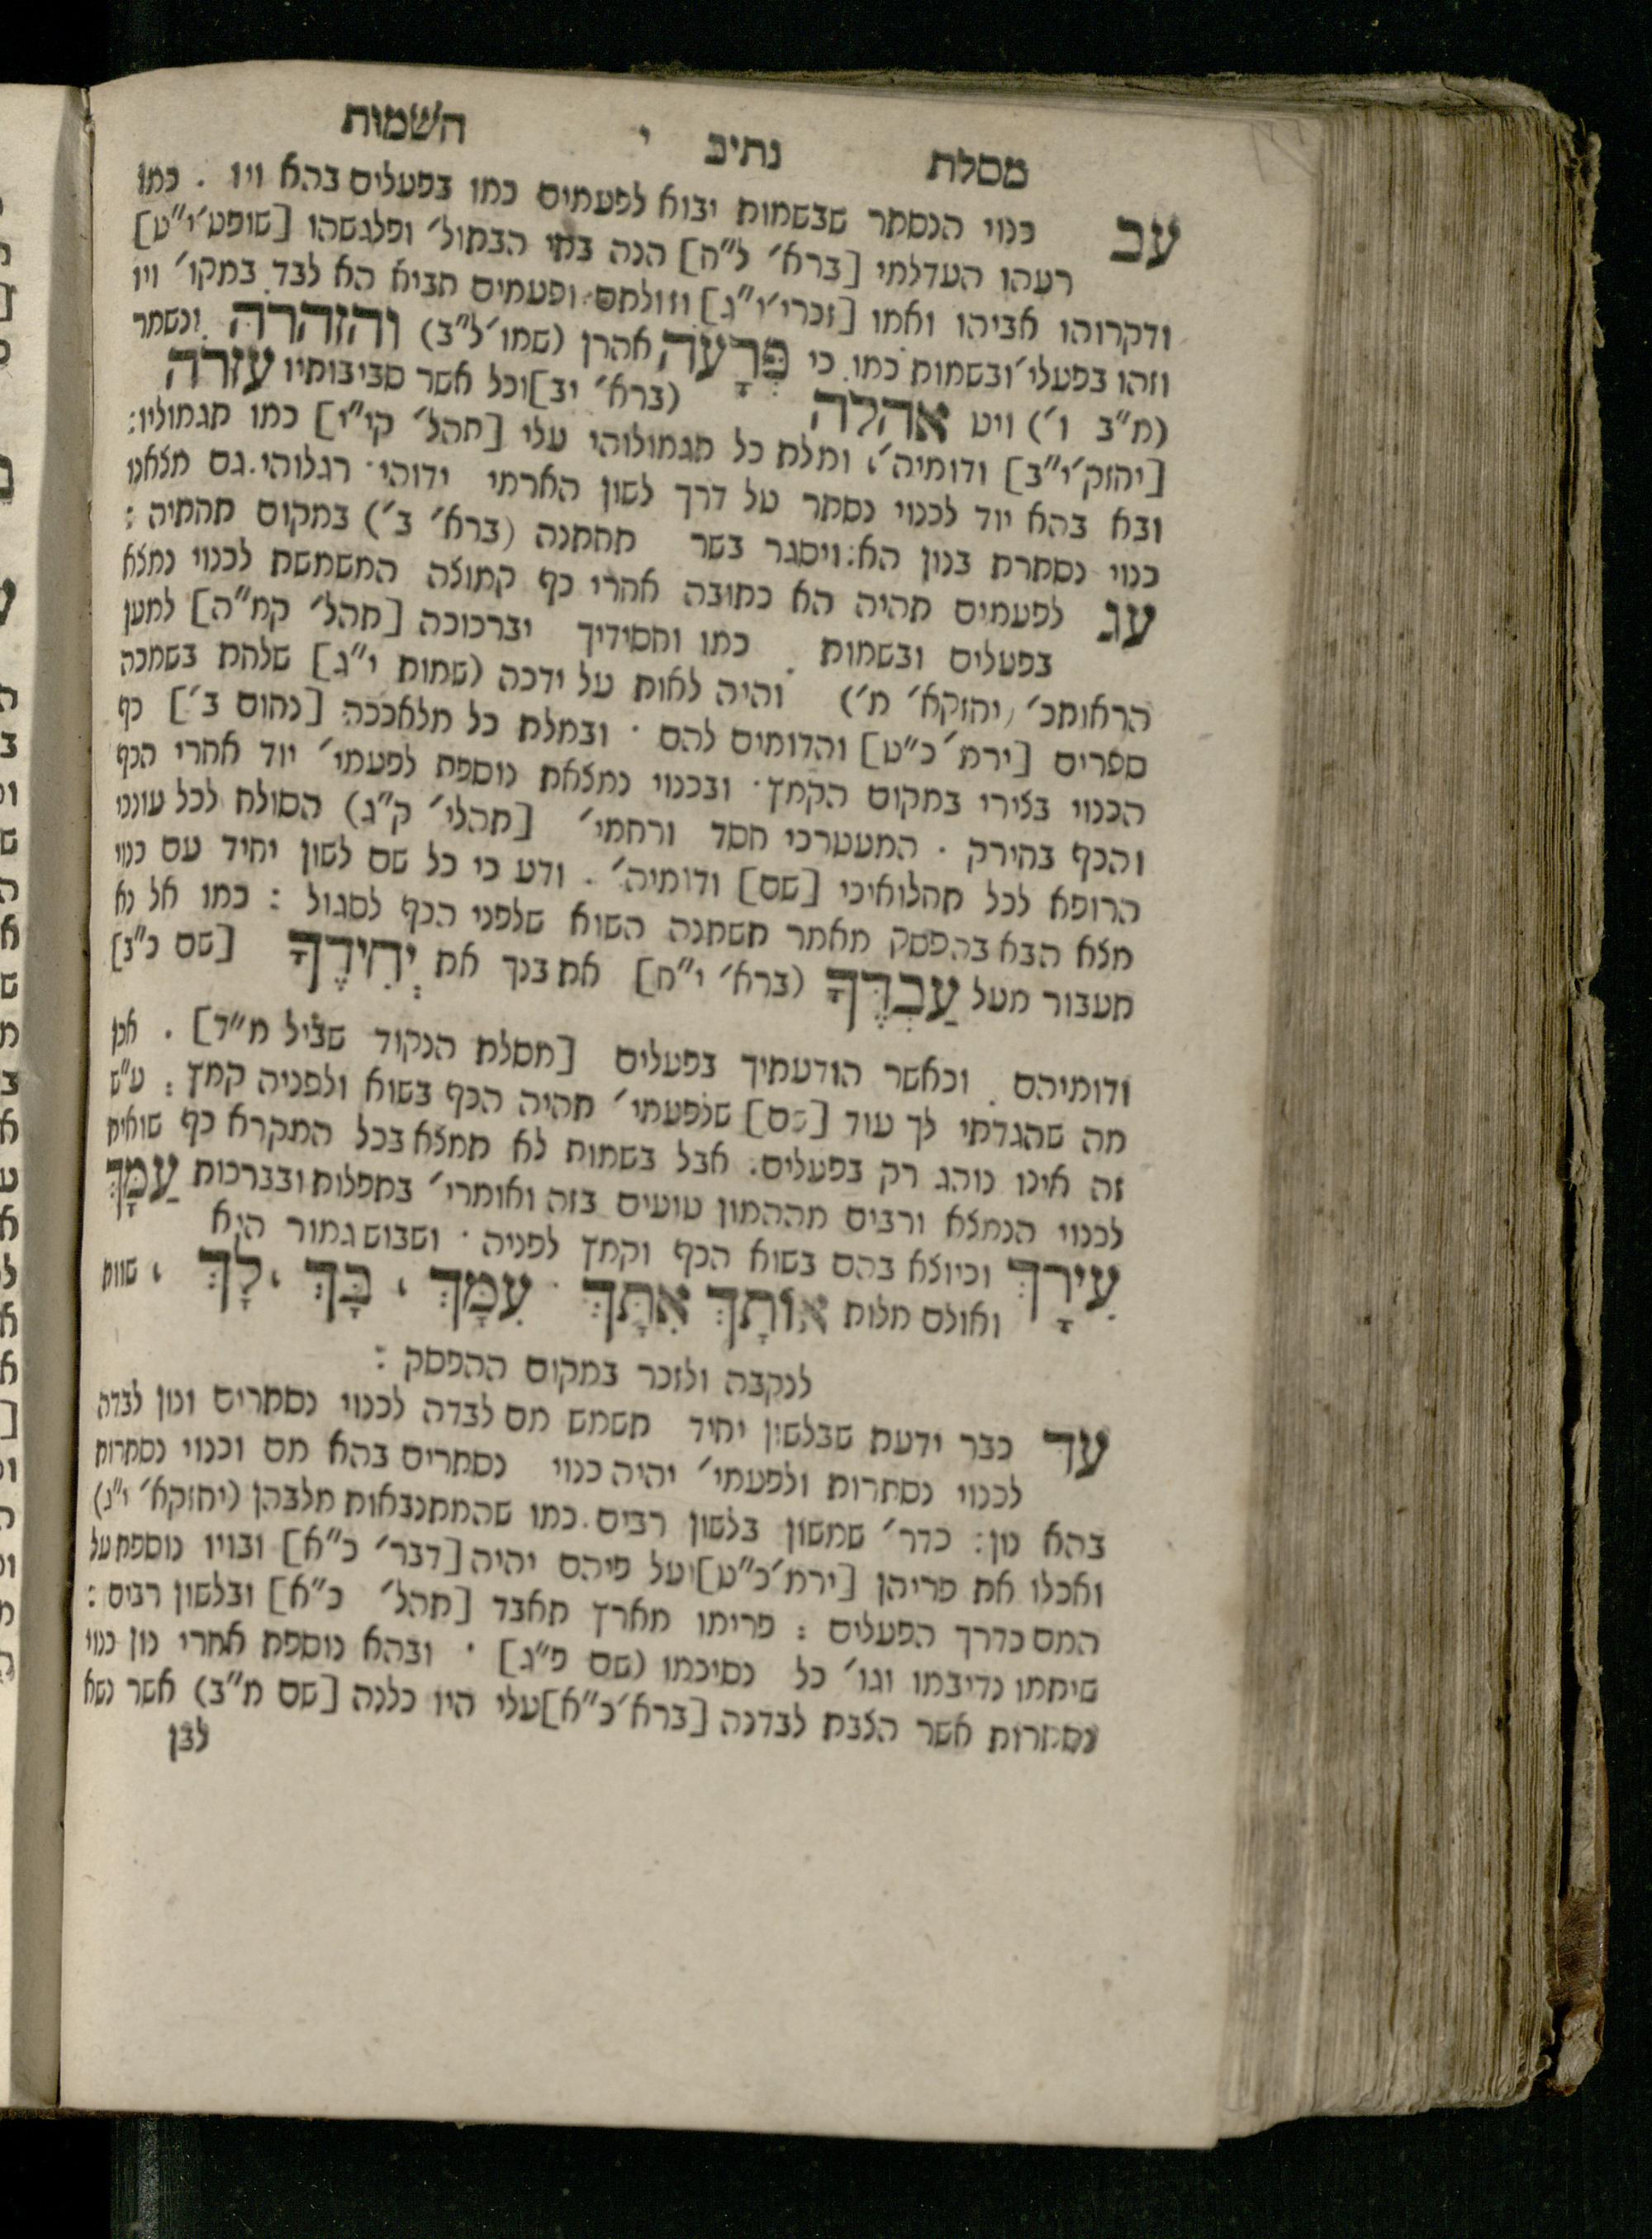 מסלת נתיב י השמות
עב כנוי הנסתר שבשמות יבוא לפעמים כמו בפעלים בהא ויו . כמו
רעהו העדלמי [ברא׳ ל״ח] הנה בתי הבתול׳ ופלגשהו [שופט׳י״ט]
ודקרוהו אביהו ואמו [זכרי׳י״ג] וזולתם· ופעמים תביא הא לבד במקו׳ ויו
וזהו בפעלי׳ ובשמות כמו כי פְּרָעֹה אהרן (שמו׳ל״ב) והזהרה ונשמר
(מ״ב ו׳) ויט אהלה (ברא׳ יב] וכל אשר סביבותיו עזרה
[יהזק׳י״ב] ודומיה׳, ומלת כל תגמולוהי עלי [תהל׳ קי״ו] כמו תגמוליו:
ובא בהא יוד לכנוי נסתר על דרך לשון הארמי ידוהי· רגלוהי. גם מצאנו
כנוי נסתרת בנון הא: ויסגר בשר תחתנה (ברא׳ ב׳) במקום תחתיה :
עג לפעמים תהיה הא כתובה אחרי כף קמוצה המשמשת לכנוי נמצא
בפעלים ובשמות . כמו וחסידיך יברכוכה [תהל׳ קמ״ה] למען
הראותכ׳ (יחזקא׳ מ׳) והיה לאות על ידכה (שמות י״ג] שלחת בשמכה
ספרים [ירמ׳ כ״ט] והדומים להם · ובמלת כל מלאככה [נחום ב׳] כף
הכנוי בצירי במקום הקמץ · ובכנוי נמצאת נוספת לפעמי׳ יוד אחרי הכף
והכף בחירק . המעטרכי חסד ורחמי׳ [תהלי׳ ק״ג) הסולח לכל עונכי
הרופא לכל תחלואיכי [שם] ודומיה׳ . ודע כי כל שם לשון יחיד עם כנוי
מצא הבא בהפסק מאמר תשתנה השוא שלפני הכף לסגול : כמו אל נא
תעבור מעל עַבְדֶּךָ (ברא׳ י״ח] את בנך את יְחִידֶךָ [שם כ״ב]
ודומיהם . וכאשר הודעתיך בפעלים [מסלת הנקוד שביל מ״ד] . אכן
מה שהגדתי לך עוד [שם] שלפעמי׳ תהיה הכף בשוא ולפניה קמץ : ע״ש
זה אינו נוהג רק בפעלים. אבל בשמות לא תמצא בכל המקרא כף שואית
לכנוי הנמצא ורבים מההמון טועים בזה ואומרי׳ בתפלות ובברכות עַמָּךְ
עִירָךְ וכיוצא בהם בשוא הכף וקמץ לפניה · ושבוש גמור היא
ואולם מלות אוֹתָךְ אִתָּךְ · עִמָּךְ , בָּךְ , לָךְ , שוות
לנקבה ולזכר במקום ההפסק :
עד כבר ידעת שבלשון יחיד תשמש מם לבדה לכנוי נסתרים ונון לבדה
לכנוי נסתרות ולפעמי׳ יהיה כנוי נסתרים בהא מם וכנוי נסתרות
בהא נון: כדר׳ שמשון בלשון רבים. כמו שהמתנבאות מלבהן (יחזקא׳ י״ג)
ואכלו את פריהן [ירמ׳כ״ט] ועל פיהם יהיה [דבר׳ כ״א] ובויו נוספת על
המם כדרך הפעלים : פרימו מארץ תאבד [תהל׳ כ״א] ובלשון רבים :
שיתמו נדיבמו וגו׳ כל נסיכמו (שם פ״ג] · ובהא נוספת אחרי נון כנוי
נסתרות אשר הצבת לבדנה [ברא׳כ״א] עלי היו כלנה [שם מ״ב) אשר נשא
לבן